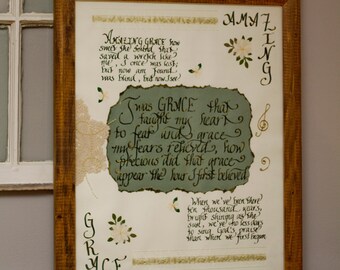 AMAZING
AMAZING GRACE how
sweet the sound, that
saved a wretch like
me, I once was lost,
but now am found
was blind, but now I see
Twas GRACE that
taught my heart
to fear and grace
my fears relieved, how
precious did that grace
appear the hour I first believed
When we've been there
ten thousand years,
bright shining as the
sun, we've no less days
to sing God's praise
than when we first begun
GRACE